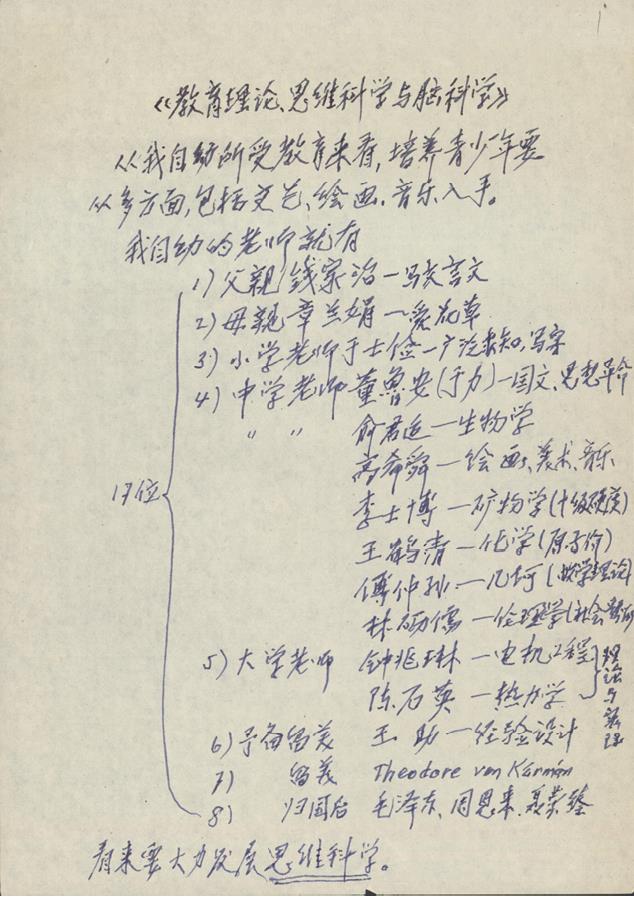 《教育理论、思维科学与脑科学》
从我自幼所受教育来看，培养青少年要
从多方面，包括文艺、绘画、音乐入手。
我自幼的老师就有
17位
1）父親 钱家治—写文言文
2）母親 章兰娟—爱花草
3）小学老师于士俭—广泛求知，写字
4）中学老师 董鲁安（于力）—国文、思想革命
〃 〃 俞君适—生物学
高希舜—绘画、美术、音乐
李士博—矿物学（十级硬度）
王鹤清—化学（原子价）
傅仲孙—几何（数学理论）
林砺儒—伦理学（社会
5）大学老师 钟兆琳—电机工程
陈石英—热力学
理论与实际
6）予备留美 王 助—经验设计
7） 留美 Theodore von Kármán
8） 归国后 毛泽东、周恩来、聂荣臻
看来要大力发展思维科学。